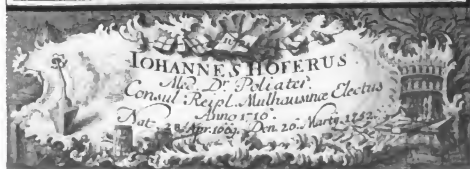 IOHANNES HOFERUS.
Med. Dr. Poliater
Consul Reipl. Mulhausinæ Electus
Anno 1716.
Nat. 28. Apr. 1669. Den. 20. Martÿ. 1752.